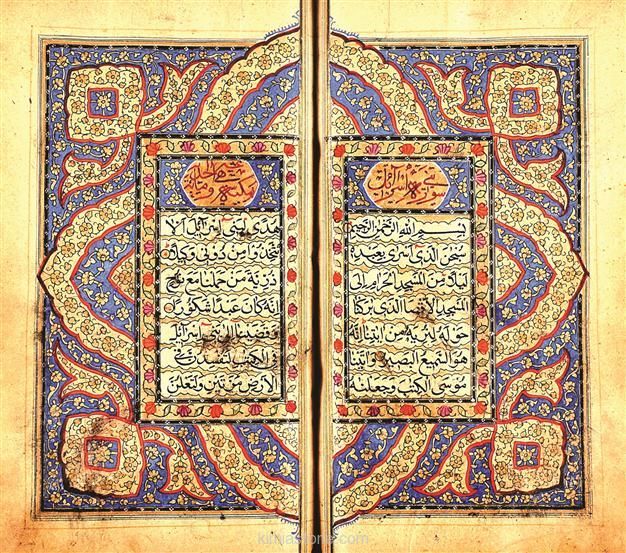 سورة بنى اسرائيل
بسم الله الرحمن الرحيم
سبحن الذى اسرى بعبده
ليلا من المسجد الحرام الى
المسجد الاقصا الذى بركنا
حوله لنريه من ايتنا انه
هو السميع البصير واتينا
موسى الكتب وجعلنه
هدى لبنى اسرائيل الا
تتخذوا من دونى وكيلا
ذرية من حملنا مع نوح
انه كان عبدا شكورا
وقضينا الى بنى اسرائيل
فى الكتب لتفسدن فى
الارض مرتين ولتعلن